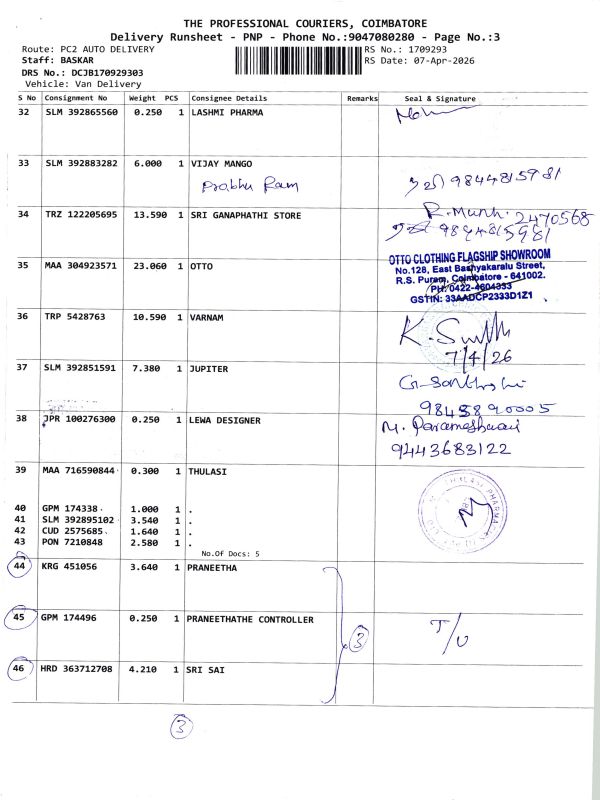 THE PROFESSIONAL COURIERS, COIMBATORE
Delivery Runsheet - PNP - Phone No.:9047080280 - Page No.:3
Route: PC2 AUTO DELIVERY RS No.: 1709293
Staff: BASKAR RS Date: 07-Apr-2026
DRS No.: DCJB170929303
Vehicle: Van Delivery
S No Consignment No Weight PCS Consignee Details Remarks Seal & Signature
32 SLM 392865560 0.250 1 LASHMI PHARMA
33 SLM 392883282 6.000 1 VIJAY MANGO
Prabhu Ram 9844815981
34 TRZ 122205695 13.590 1 SRI GANAPHATHI STORE
2470568
35 MAA 304923571 23.060 1 OTTO
OTTO CLOTHING FLAGSHIP SHOWROOM
No.128, East Bashyakaralu Street,
R.S. Puram, Coimbatore - 641002.
PH: 0422-4604333
GSTIN: 33AADCP2333D1Z1
36 TRP 5428763 10.590 1 VARNAM
7/4/26
37 SLM 392851591 7.380 1 JUPITER
38 JPR 100276300 0.250 1 LEWA DESIGNER
M. Parameshwari
9443683122
39 MAA 716590844 0.300 1 THULASI
40 GPM 174338 1.000 1 .
41 SLM 392895102 3.540 1 .
42 CUD 2575685 1.640 1 .
43 PON 7210848 2.580 1 .
No.Of Docs: 5
44 KRG 451056 3.640 1 PRANEETHA
45 GPM 174496 0.250 1 PRANEETHATHE CONTROLLER 3 T/U
46 HRD 363712708 4.210 1 SRI SAI
3